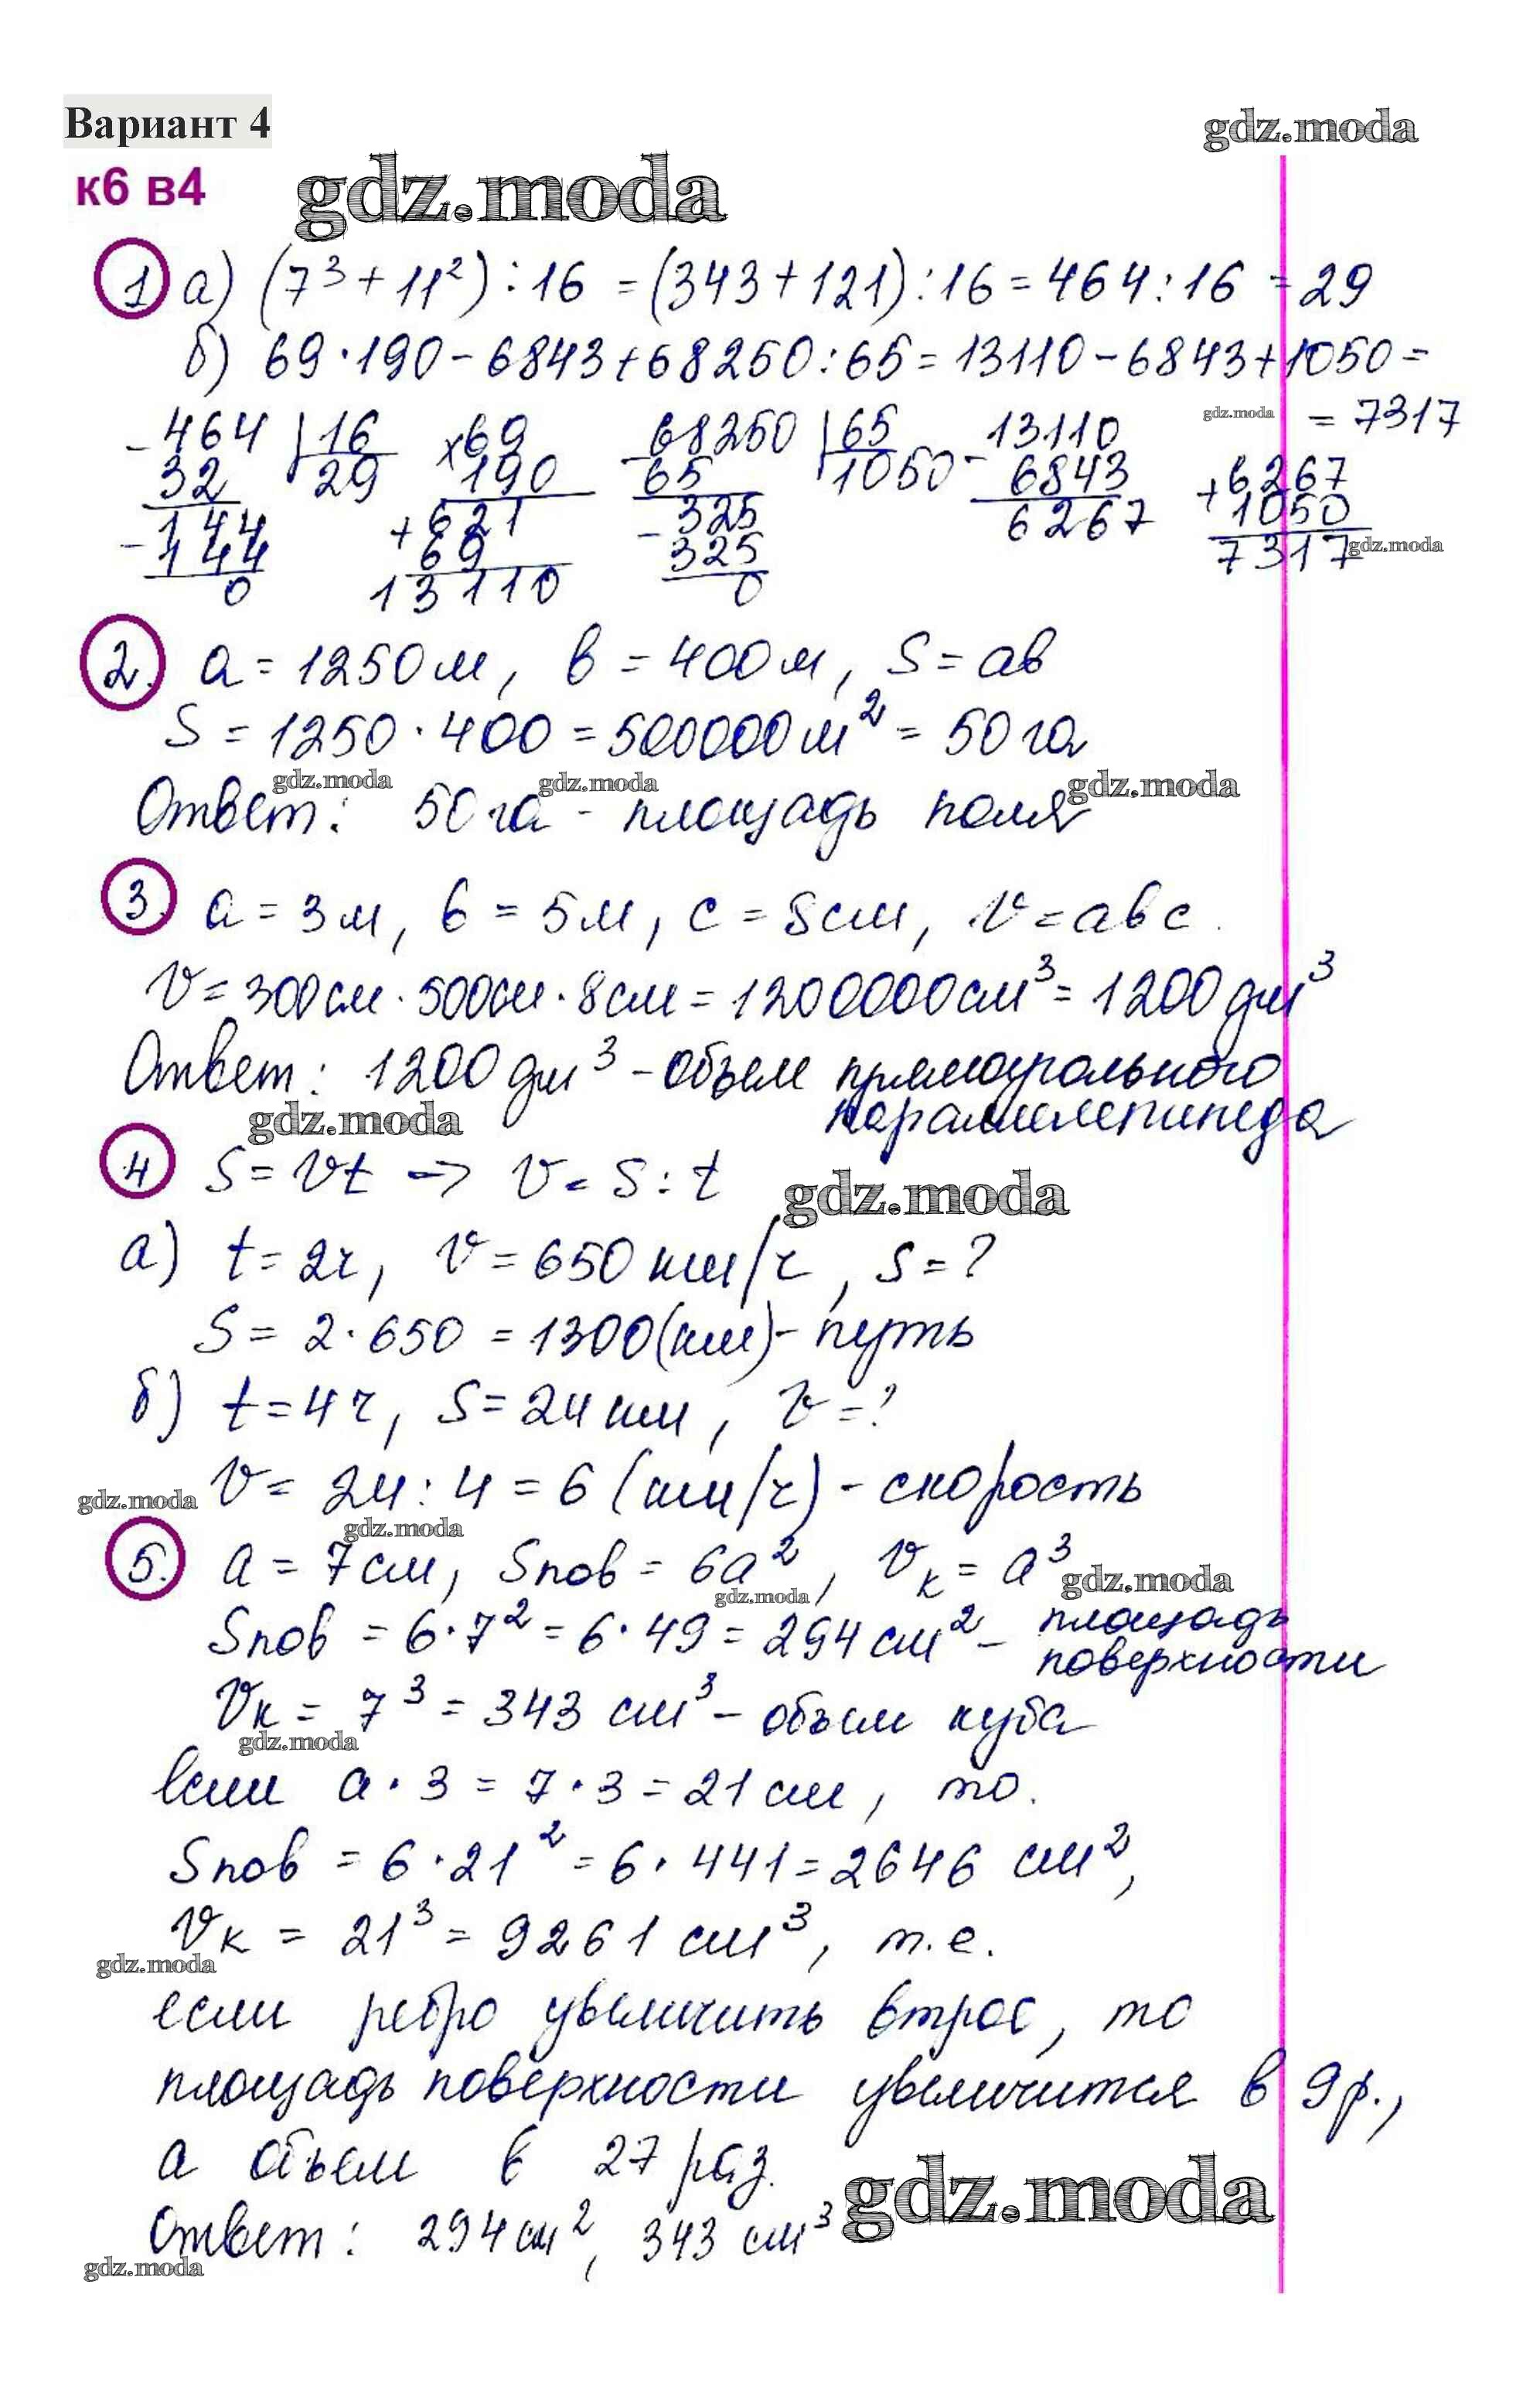 Вариант 4
gdz.moda
к6 в4
gdz.moda
1 а) (7³ + 11²) : 16 = (343 + 121) : 16 = 464 : 16 = 29
б) 69 · 190 - 6843 + 68250 : 65 = 13110 - 6843 + 1050 =
gdz.moda = 7317
- 464 | 16 × 69 - 68250 | 65 - 13110
32 29 190 65 1050 6843 + 6267
144 + 621 - 325 6267 1050
- 144 69 325 7317 gdz.moda
0 13110 0
2. a = 1250 м, b = 400 м, S = ab
S = 1250 · 400 = 500000 м² = 50 га
gdz.moda gdz.moda gdz.moda
Ответ: 50 га - площадь поля
3. a = 3 м, b = 5 м, c = 8 см, V = abc
V = 300 см · 500 см · 8 см = 1200000 см³ = 1200 дм³
Ответ: 1200 дм³ - объем прямоугольного
параллелепипеда
gdz.moda
4 S = Vt -> V = S : t
gdz.moda
а) t = 2ч, V = 650 км/ч, S = ?
S = 2 · 650 = 1300 (км) - путь
б) t = 4ч, S = 24 км, V = ?
gdz.moda V = 24 : 4 = 6 (км/ч) - скорость
gdz.moda
5. a = 7 см, Sпов = 6a², Vк = a³ gdz.moda
gdz.moda
Sпов = 6 · 7² = 6 · 49 = 294 см² - площадь
поверхности
Vк = 7³ = 343 см³ - объем куба
gdz.moda
если a · 3 = 7 · 3 = 21 см, то.
Sпов = 6 · 21² = 6 · 441 = 2646 см²,
Vк = 21³ = 9261 см³, т.е.
gdz.moda
если ребро увеличить втрое, то
площадь поверхности увеличится в 9 р.,
а объем в 27 раз.
gdz.moda
Ответ: 294 см², 343 см³
gdz.moda